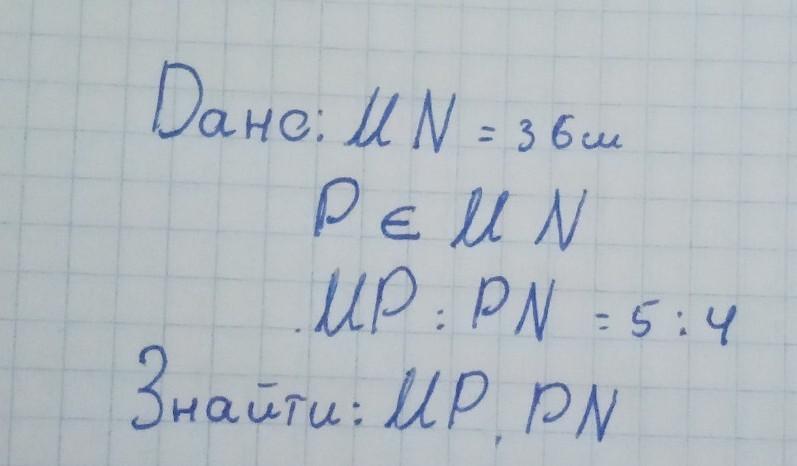 Дано: MN = 36 см
P ∈ MN
MP : PN = 5 : 4
Знайти: MP, PN